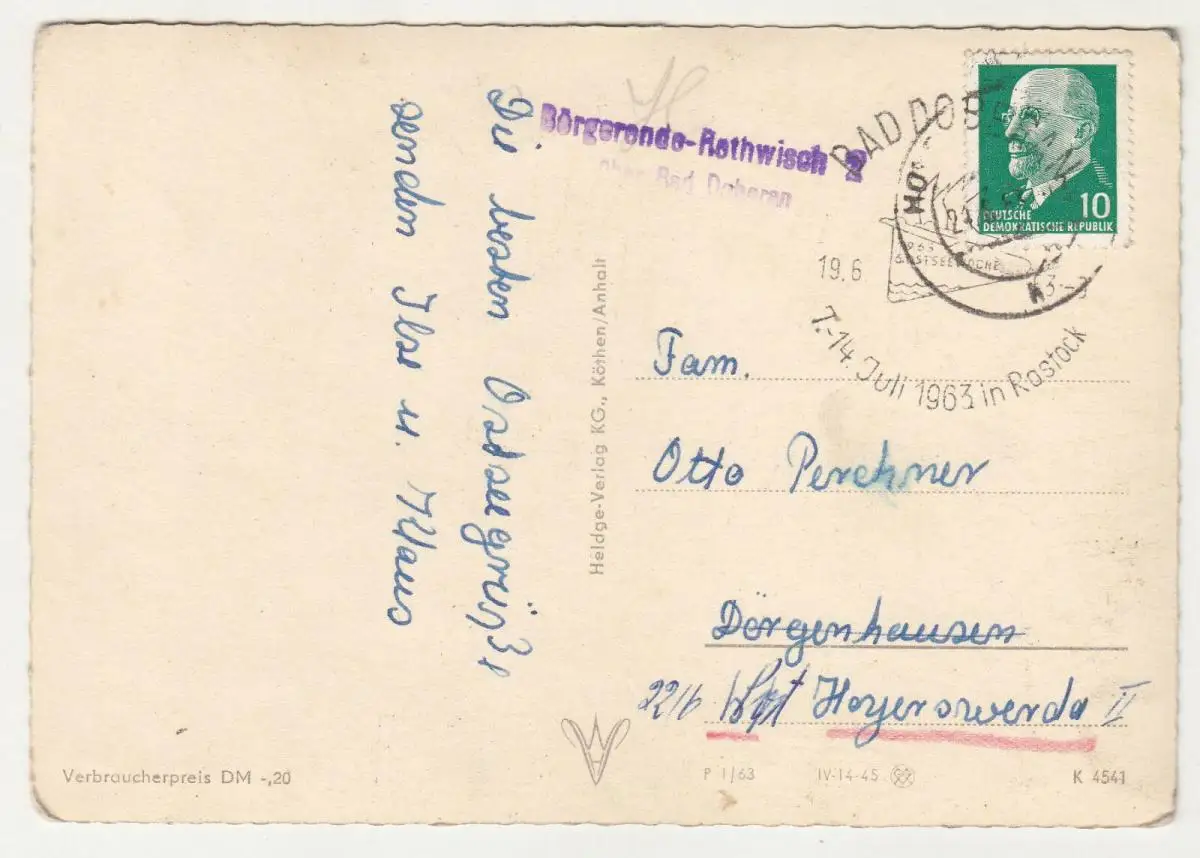 Die besten Ostseegrüße
senden Ilse u. Klaus
Börgerende-Rethwisch 2
über Bad Doberan
BAD DOBERAN
19.6
1963
6. OSTSEEWOCHE
7.-14. Juli 1963 in Rostock
10
DEUTSCHE
DEMOKRATISCHE REPUBLIK
Heldge-Verlag KG., Köthen/Anhalt
Fam.
Otto Perchner
Dörgenhausen
Hoyerswerda II
Verbraucherpreis DM -,20
P 1/63
IV-14-45
K 4541